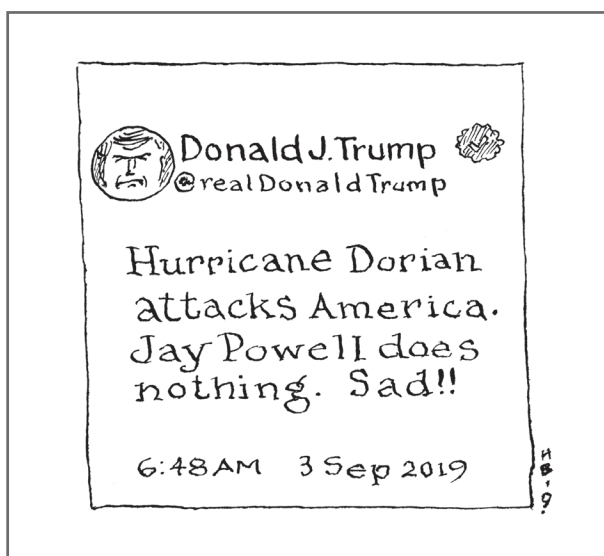 Donald J. Trump
@realDonaldTrump
Hurricane Dorian
attacks America.
Jay Powell does
nothing. Sad!!
6:48 AM 3 Sep 2019